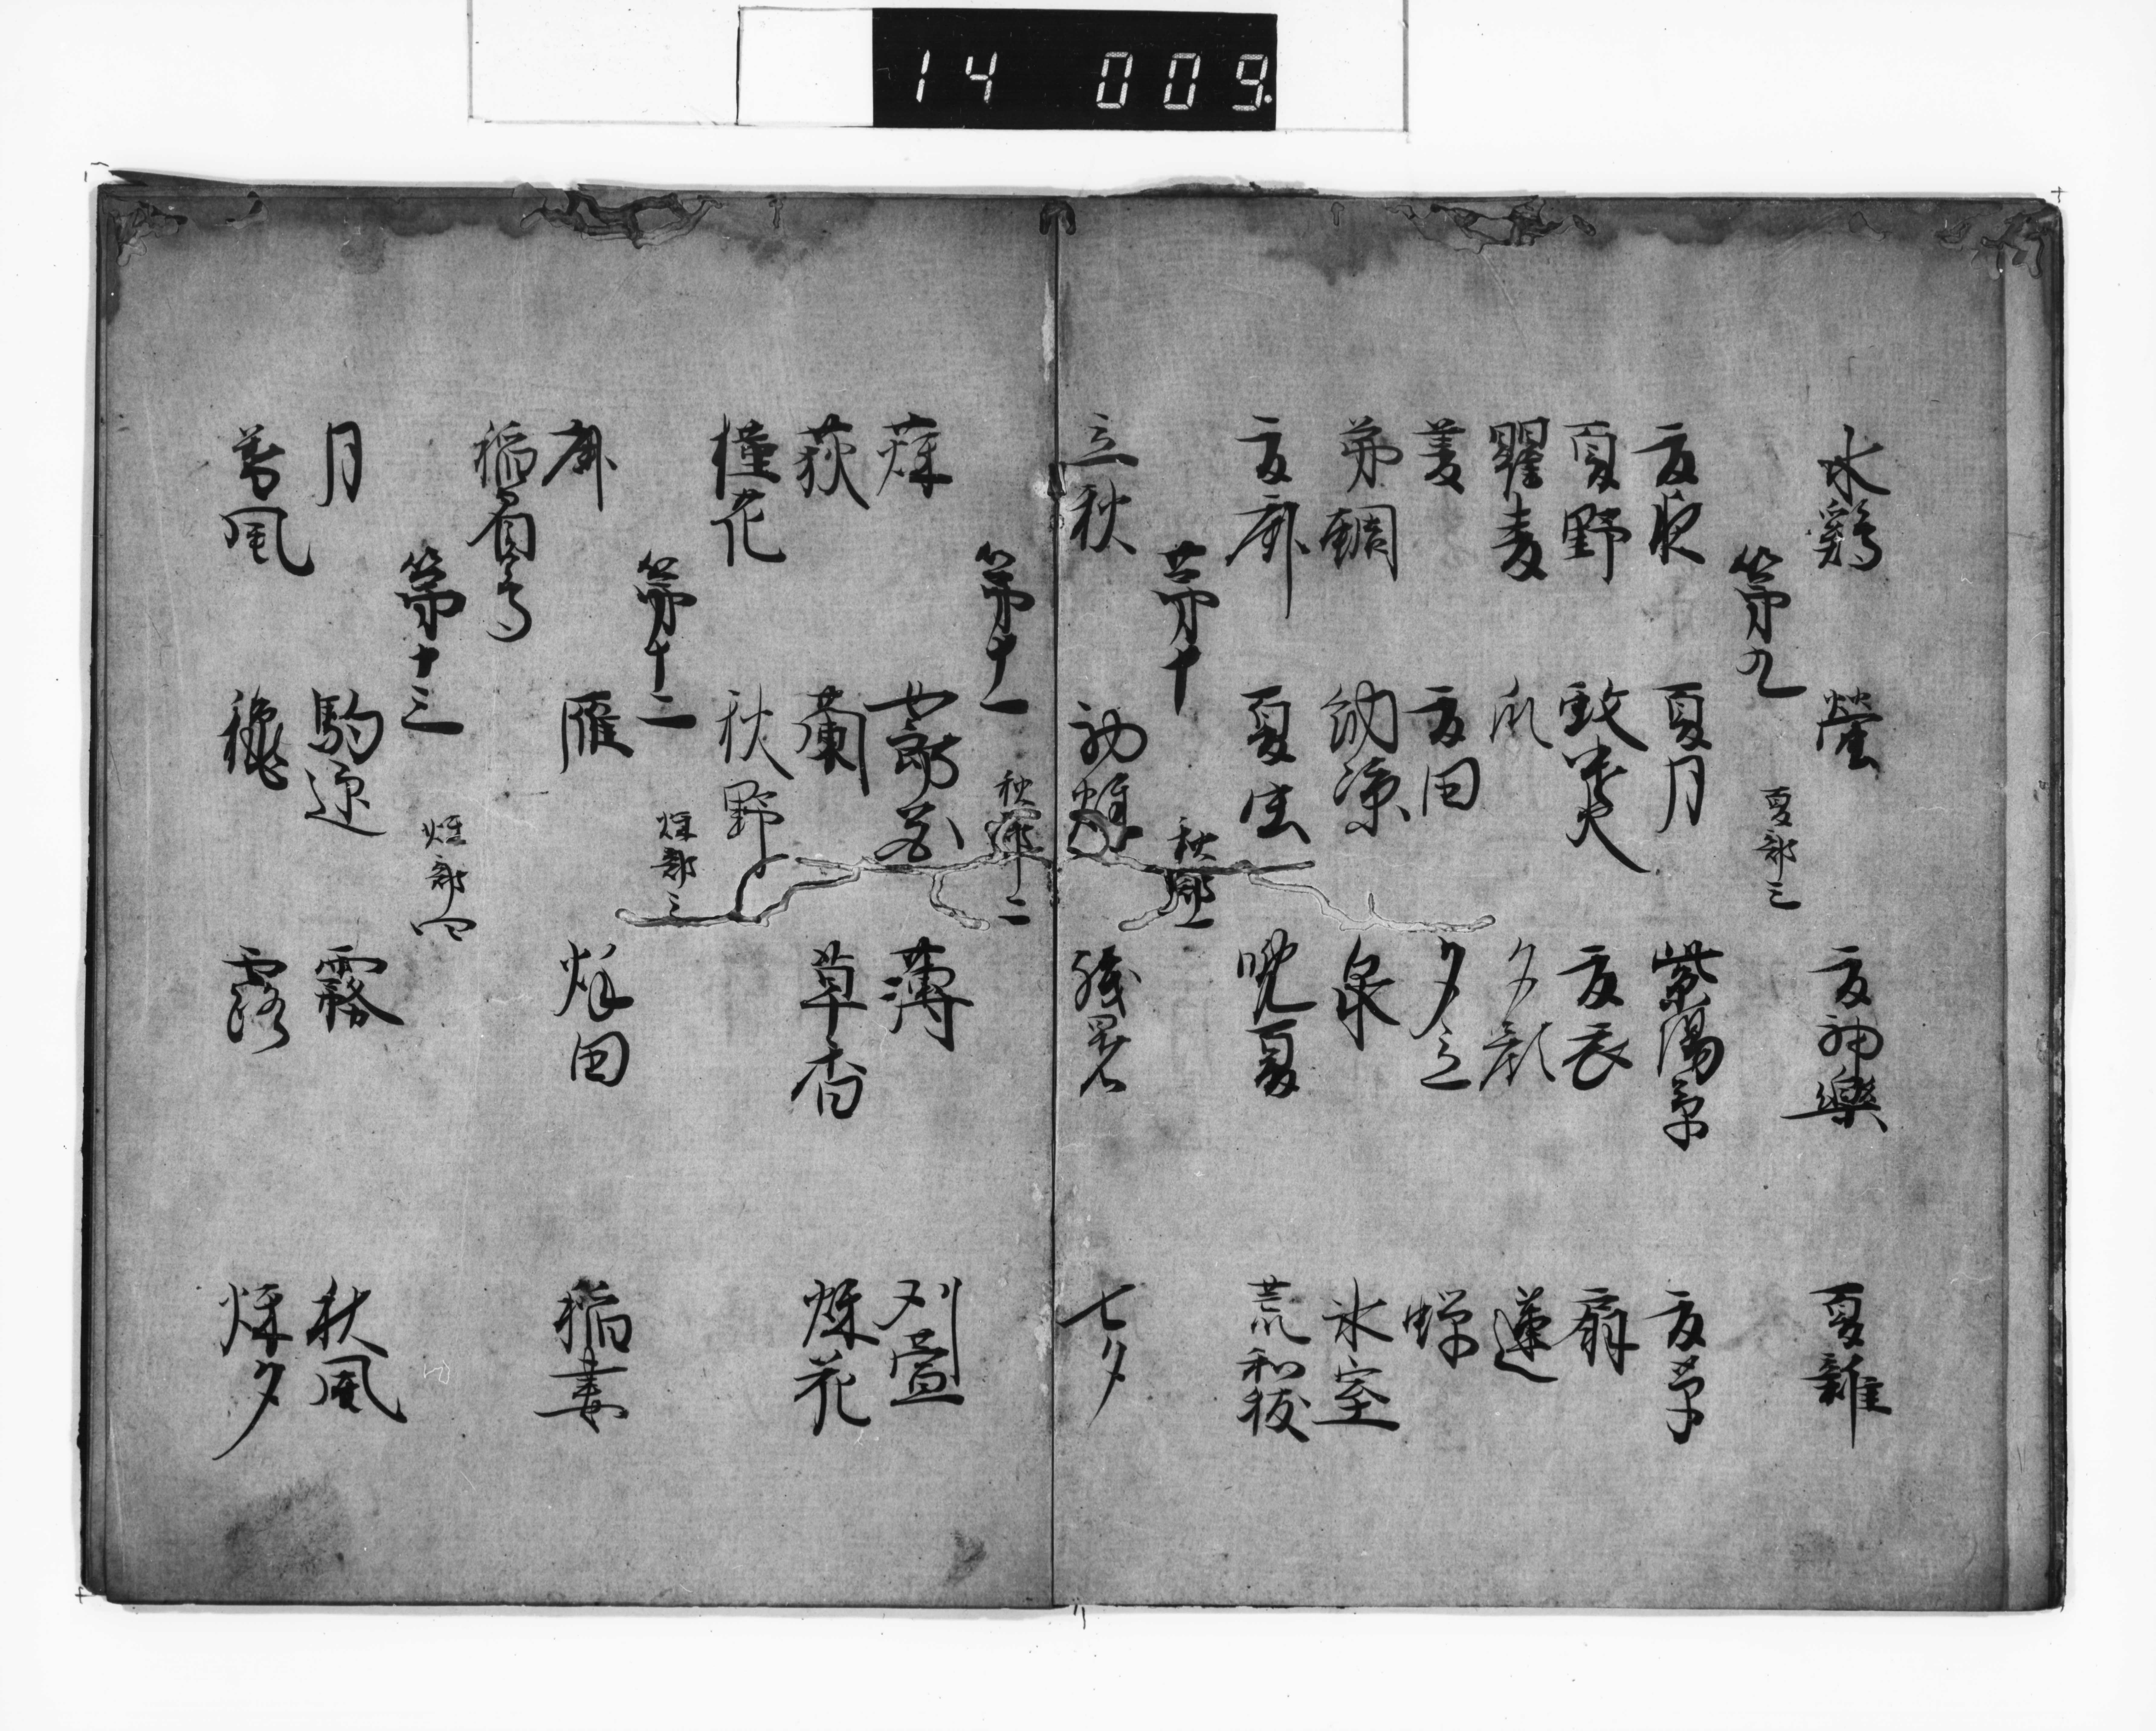 14 009
水鶏 蛍 夏神樂 夏雜
第九 夏部三
夏夜 夏月 紫陽草 夏草
夏野 蚊遣火 夏衣 扇
瞿麦 瓜 夕顔 蓮
菱 夏田 夕立 蝉
茅蜩 納涼 泉 氷室
夏鹿 夏虫 晩夏 荒和祓
第十 秋部一
立秋 初秋 残暑 七夕
第十一 秋部二
萩 女郎花 薄 刈萱
荻 蘭 草香 秋花
槿花 秋野
第十二 秋部三
鹿 雁 秋田 稲妻
稲負鳥
第十三 秋部四
月 駒迎 霧 秋風
暮風 穐 露 秋夕